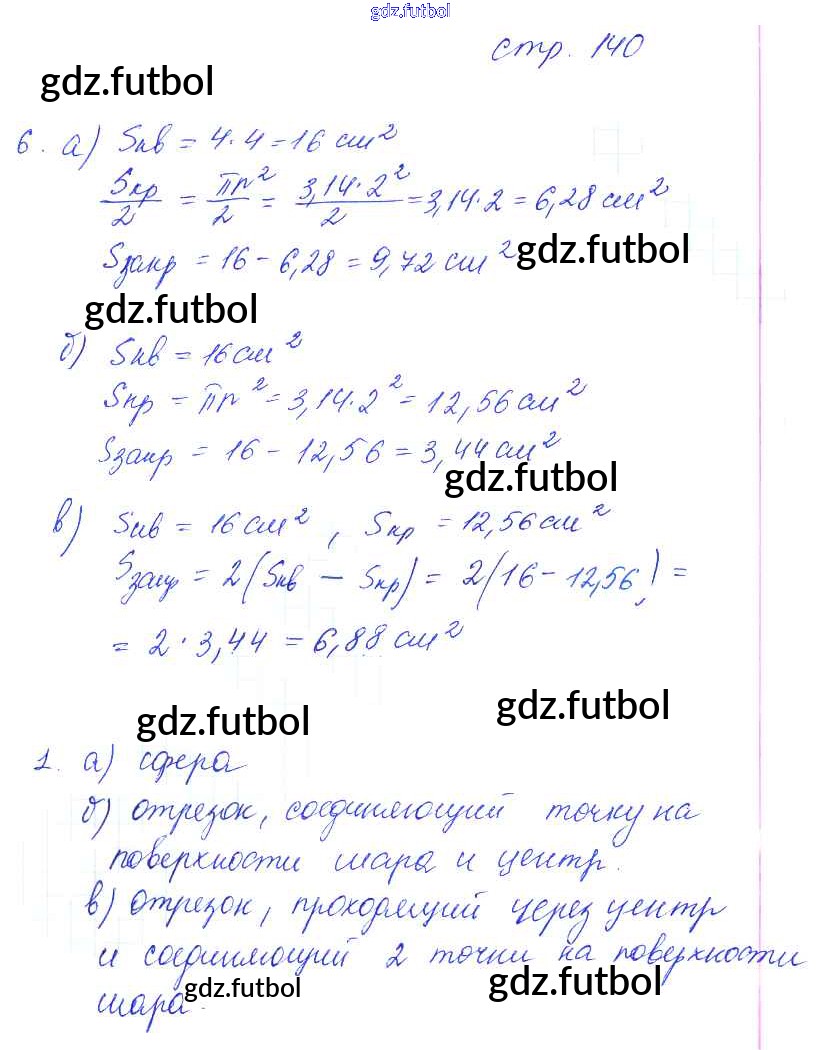 gdz.futbol
стр. 140
gdz.futbol
6. а) Sкв = 4·4 = 16 см²
Sкр/2 = πr²/2 = 3,14·2²/2 = 3,14·2 = 6,28 см²
gdz.futbol
Sзакр = 16 - 6,28 = 9,72 см²
gdz.futbol
б) Sкв = 16 см²
Sкр = πr² = 3,14·2² = 12,56 см²
Sзакр = 16 - 12,56 = 3,44 см²
gdz.futbol
в) Sкв = 16 см², Sкр = 12,56 см²
Sзакр = 2(Sкв - Sкр) = 2(16 - 12,56) =
= 2·3,44 = 6,88 см²
gdz.futbol
gdz.futbol
1. а) сфера
б) отрезок, соединяющий точку на
поверхности шара и центр.
в) отрезок, проходящий через центр
и соединяющий 2 точки на поверхности
шара.
gdz.futbol
gdz.futbol